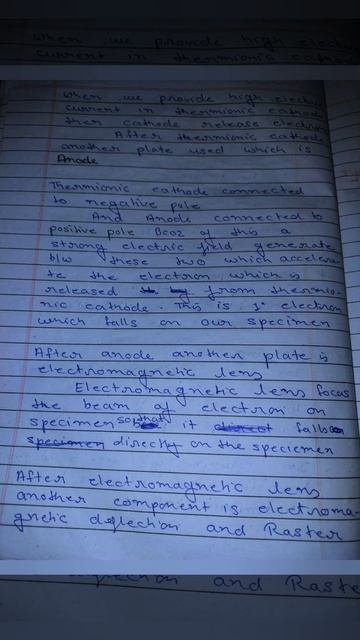 when we provide high elec
current in thermionic cathod
when we provide high electri
current in thermionic cathode
then cathode release electron
After thermionic cathode
another plate used which is
Anode
Thermionic cathode connected
to negative pole
And Anode connected to
positive pole Bcoz of this a
strong electric field generate
b/w these two which accelera
te the electron which is
released from thermio-
nic cathode. This is 1° electron
which falls on our specimen
After anode another plate is
electromagnetic lens
Electromagnetic lens focus
the beam of electron on
specimen so that it falls on
specimen directly on the speciemen
After electromagnetic lens
another component is electroma-
gnetic deflection and Raster
and Raste